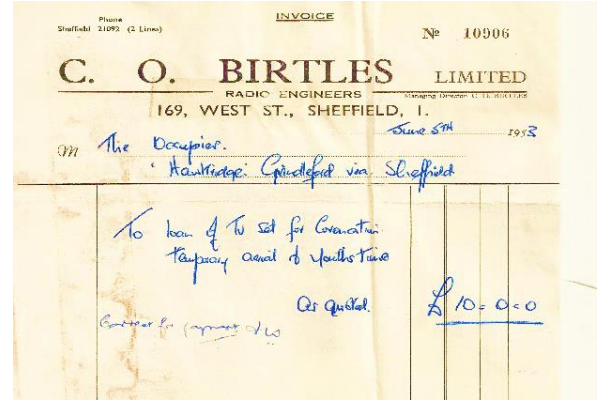 INVOICE
Phone
Sheffield 21092 (2 Lines)
Nº 10906
C. O. BIRTLES LIMITED
RADIO ENGINEERS
Managing Director C. O. BIRTLES
169, WEST ST., SHEFFIELD, 1.
June 5TH 1953
M The Occupier.
'Hawkridge' Grindleford via Sheffield
To loan of TV set for Coronation
temporary aerial &
As quoted.
£10-0-0
Correct for payment